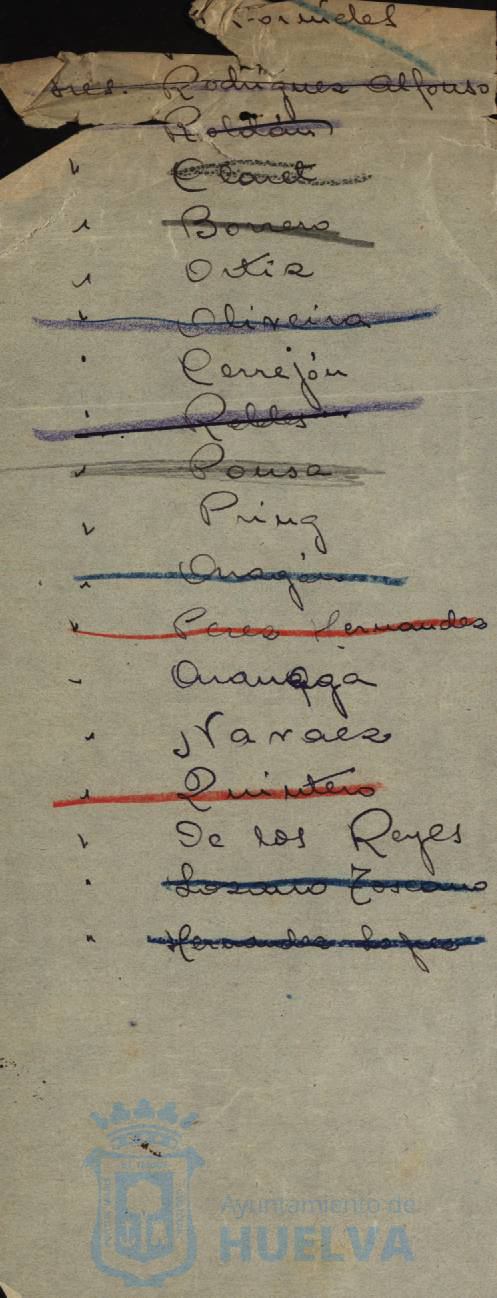 Sres. Rodríguez Alfonso
Roldán
" Claret
" Borrero
" Ortiz
" Oliveira
" Cerrejón
" Robles
" Pousa
" Pring
" Aragón
" Perez Hernandez
" Aranaga
" Narvaez
" Quintero
" De los Reyes
" Lozano Toscano
" Hernandez Lopez
Ayuntamiento de
HUELVA